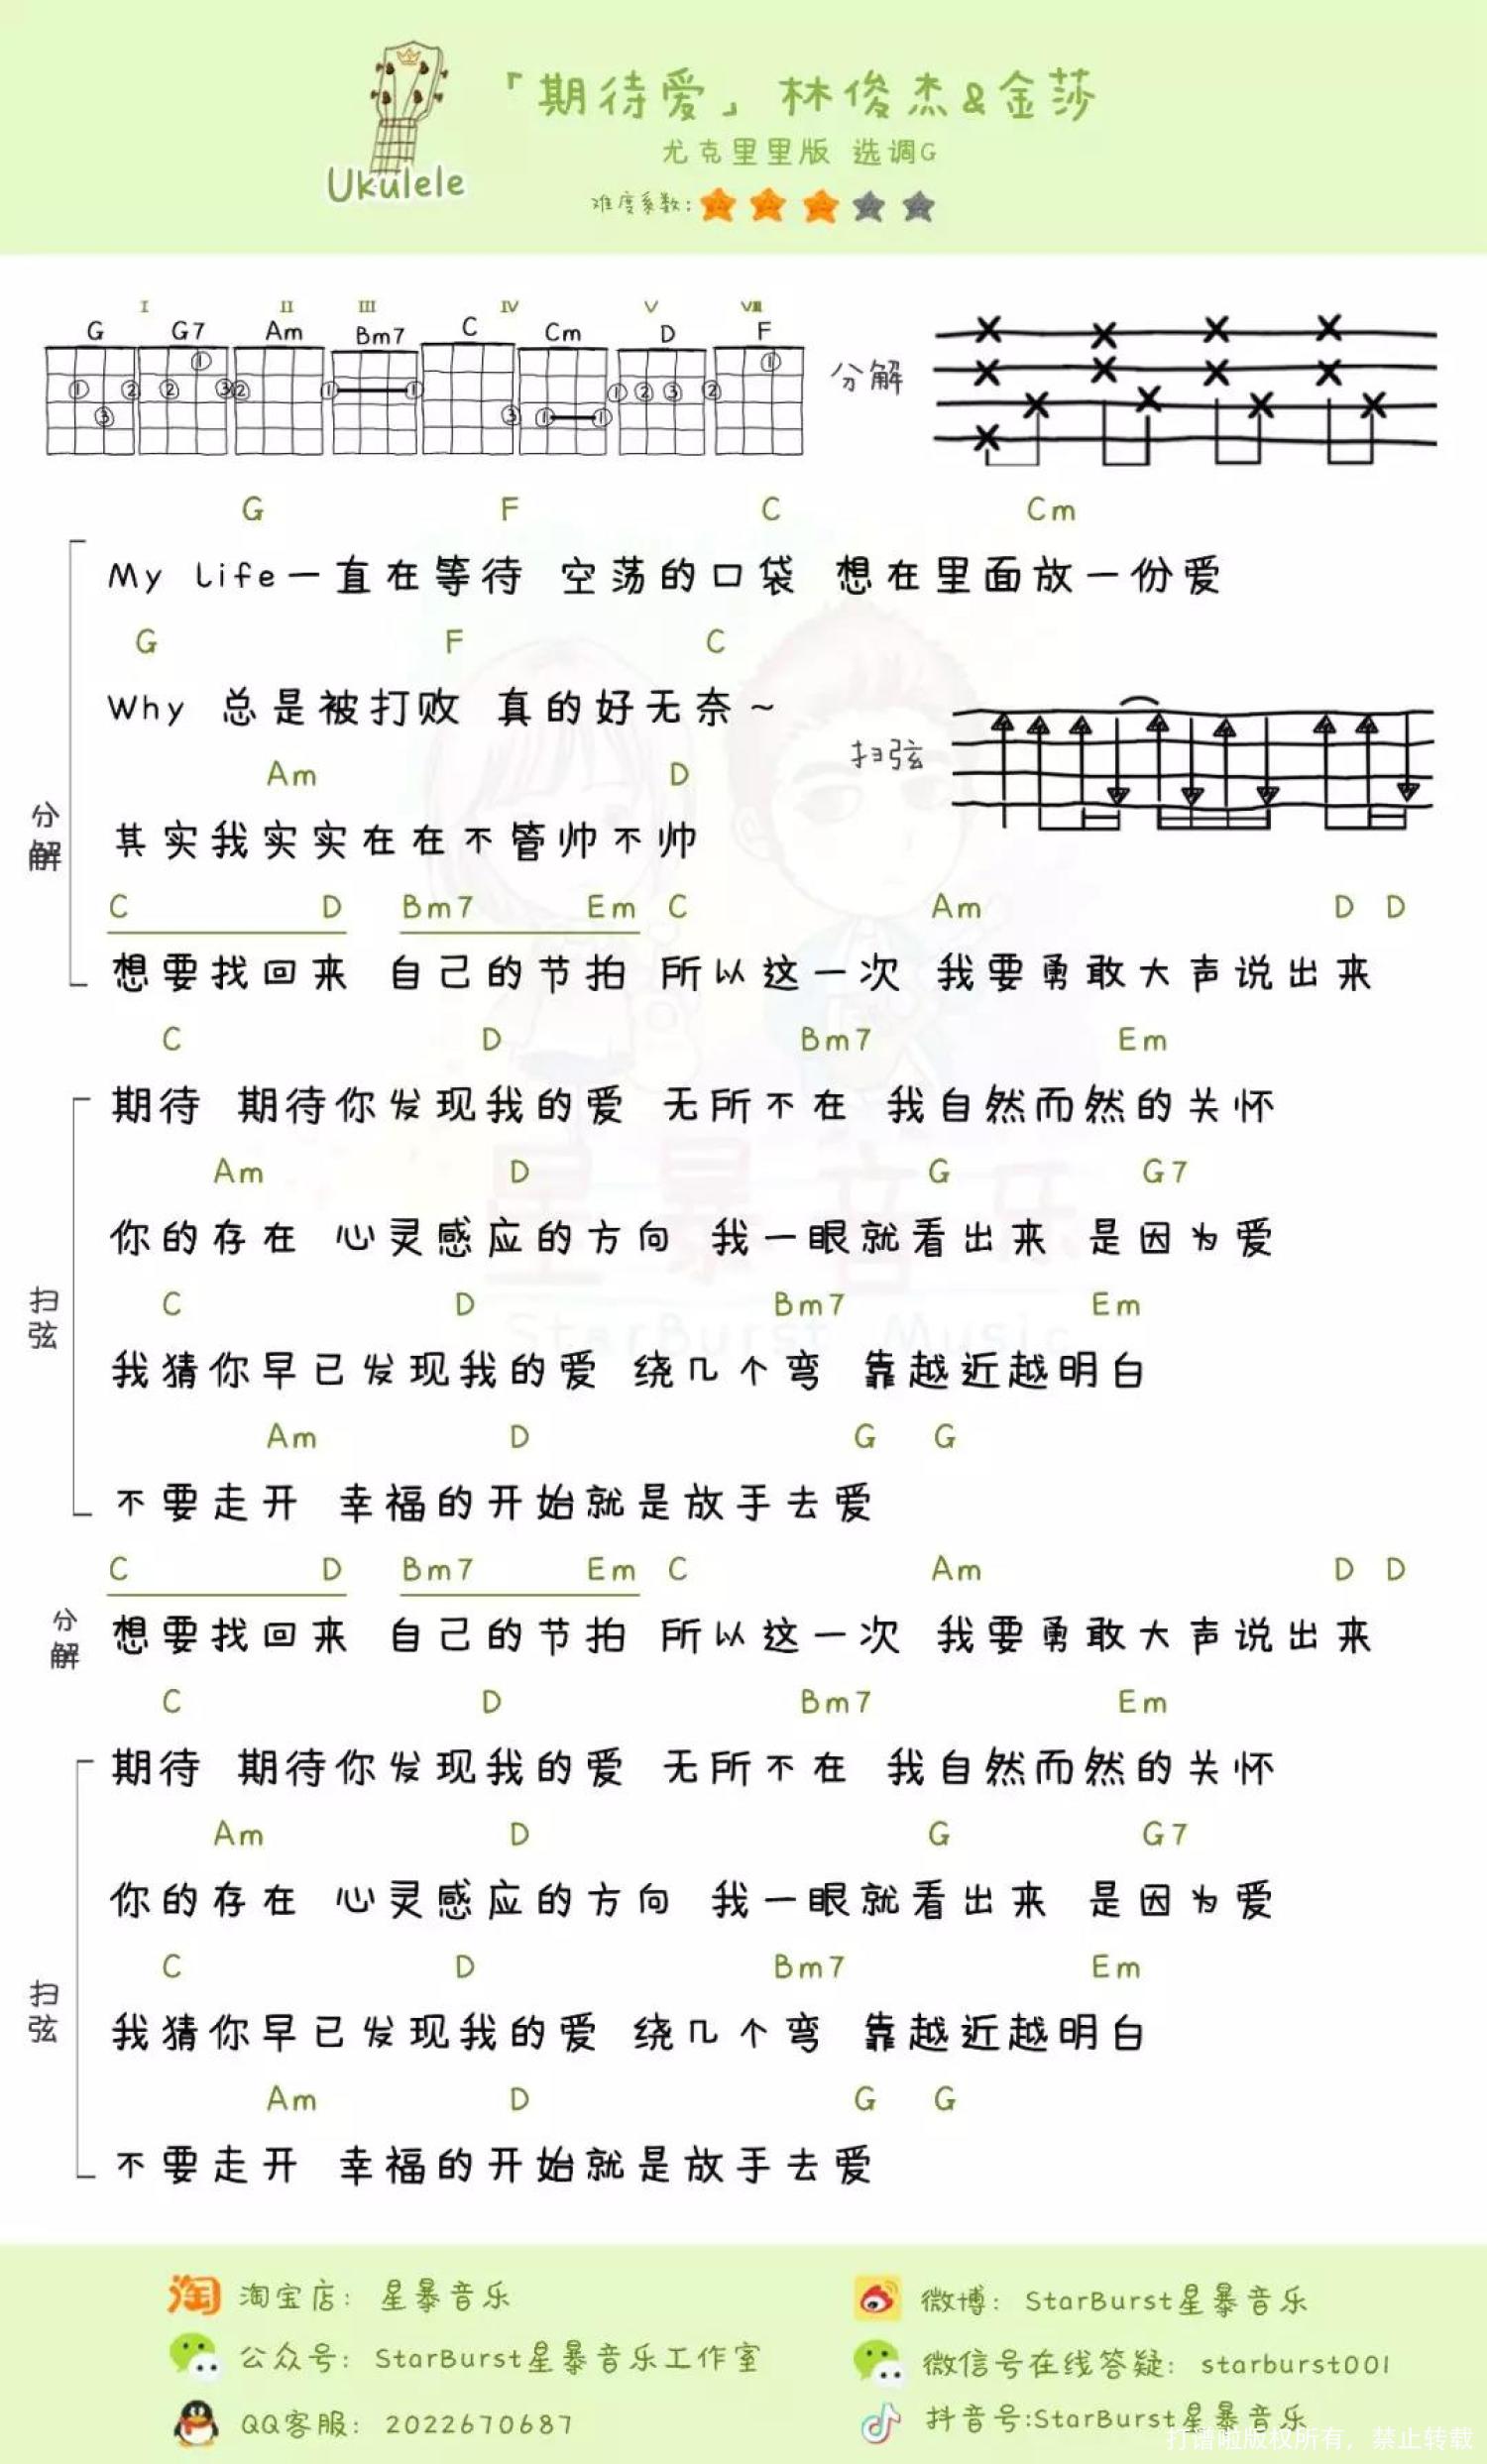 「期待爱」林俊杰&金莎
尤克里里版 选调G
Ukulele
难度系数:
I II III IV V VII
G G7 Am Bm7 C Cm D F
分解
G F C Cm
My Life一直在等待 空荡的口袋 想在里面放一份爱
G F C
Why 总是被打败 真的好无奈~
扫弦
Am D
其实我实实在在不管帅不帅
分解
C D Bm7 Em C Am D D
想要找回来 自己的节拍 所以这一次 我要勇敢大声说出来
C D Bm7 Em
期待 期待你发现我的爱 无所不在 我自然而然的关怀
Am D G G7
你的存在 心灵感应的方向 我一眼就看出来 是因为爱
扫弦
C D Bm7 Em
我猜你早已发现我的爱 绕几个弯 靠越近越明白
Am D G G
不要走开 幸福的开始就是放手去爱
C D Bm7 Em C Am D D
分解
想要找回来 自己的节拍 所以这一次 我要勇敢大声说出来
C D Bm7 Em
期待 期待你发现我的爱 无所不在 我自然而然的关怀
Am D G G7
你的存在 心灵感应的方向 我一眼就看出来 是因为爱
扫弦
C D Bm7 Em
我猜你早已发现我的爱 绕几个弯 靠越近越明白
Am D G G
不要走开 幸福的开始就是放手去爱
星暴音乐
StarBurst Music
淘 淘宝店: 星暴音乐
微博: StarBurst星暴音乐
公众号: StarBurst星暴音乐工作室
微信号在线答疑: starburst001
QQ客服: 2022670687
抖音号:StarBurst星暴音乐
打谱啦版权所有，禁止转载